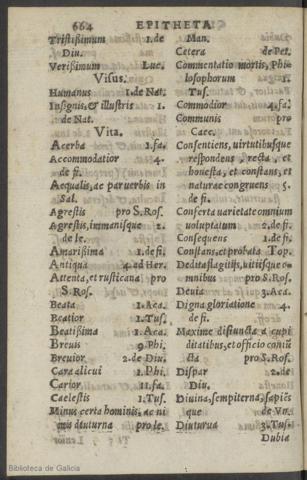 664 EPITHETA
Tristißimum 1. de
Diu.
Verißimum Luc.
Visus.
Humanus 1. de Nat.
Insignis, & illustris 1.
de Nat.
Vita.
Acerba 1. fa.
Accommodatior 4.
de fi.
Aequalis, ac par verbis in
Sal.
Agrestis pro S. Ros.
Agrestis, immanisque 2.
de le.
Amarißima 1. de fi.
Antiqua 4. ad Her.
Attenta, et rusticana pro
S. Ros.
Beata 1. Aca.
Beatior 1. Tus.
Beatißima 1. Aca.
Breuis 9. Phi.
Breuior 2. de Diu.
Cara alicui 1. Phi.
Carior 11. fa.
Caelestis 1. Tus.
Minus certa hominis, ac ni
mis diuturna pro le.
Man.
Cetera de Pet.
Commentatio mortis, Phi-
losophorum 1.
Tus.
Commodior 4. fa.
Communis pro
Caec.
Consentiens, virtutibusque
respondens, recta, et
honesta, et constans, et
naturae congruens 5.
de fi.
Conferta varietate omnium
voluptatum 2. de fi.
Consequens 1. de fi.
Constans, et probata Top.
Dedita flagitijs, vitijsque o-
mnibus pro S. Ros.
Deuia 3. Aca.
Digna gloriatione 4.
de fi.
Maxime disiuncta a cupi
ditatibus, et officio coniū
cta pro S. Ros.
Dispar 2. de
Diu.
Diuina, sempiterna, sapiēs
que de Vn.
Diuturna 3. Tus.
Dubia
Biblioteca de Galicia